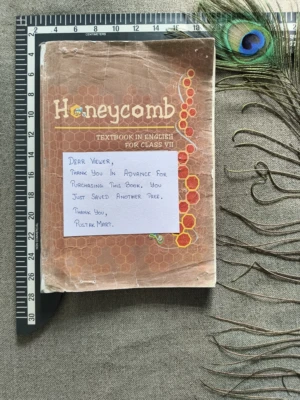 Honeycomb
TEXTBOOK IN ENGLISH
FOR CLASS VII
DEAR VIEWER,
THANK YOU IN ADVANCE FOR
PURCHASING THIS BOOK, YOU
JUST SAVED ANOTHER TREE.
THANK YOU,
PUSTAK MART.